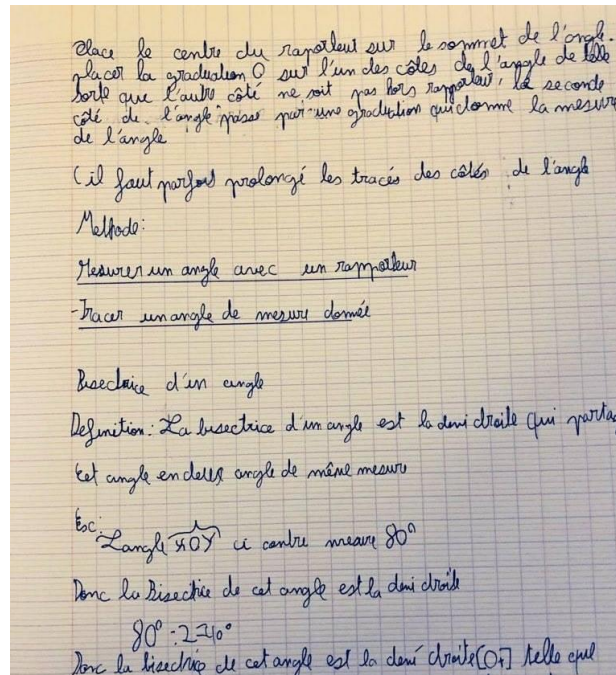 Place le centre du raporteur sur le sommet de l'angle.
placer la graduation O sur l'un des côtes de l'angle de telle
sorte que l'autre côté ne soit pas hors rapporteur, la seconde
côté de l'angle passe par une graduction qui donne la mesure
de l'angle
(il faut parfois prolongé les tracés des côtés de l'angle
Methode:
Mesurer un angle avec un rapporteur
-Tracer un angle de mesure donnée
Bisectrice d'un angle
Definition: La bisectrice d'un angle est la demi droite qui partag
cet angle en deux angle de même mesure
Ex: L'angle xOy ci contre mesure 80°
Donc la Bisectrie de cet angle est la demi droite
80° : 2=40°
Donc la bisectrice de cet angle est la demi droite [O telle que